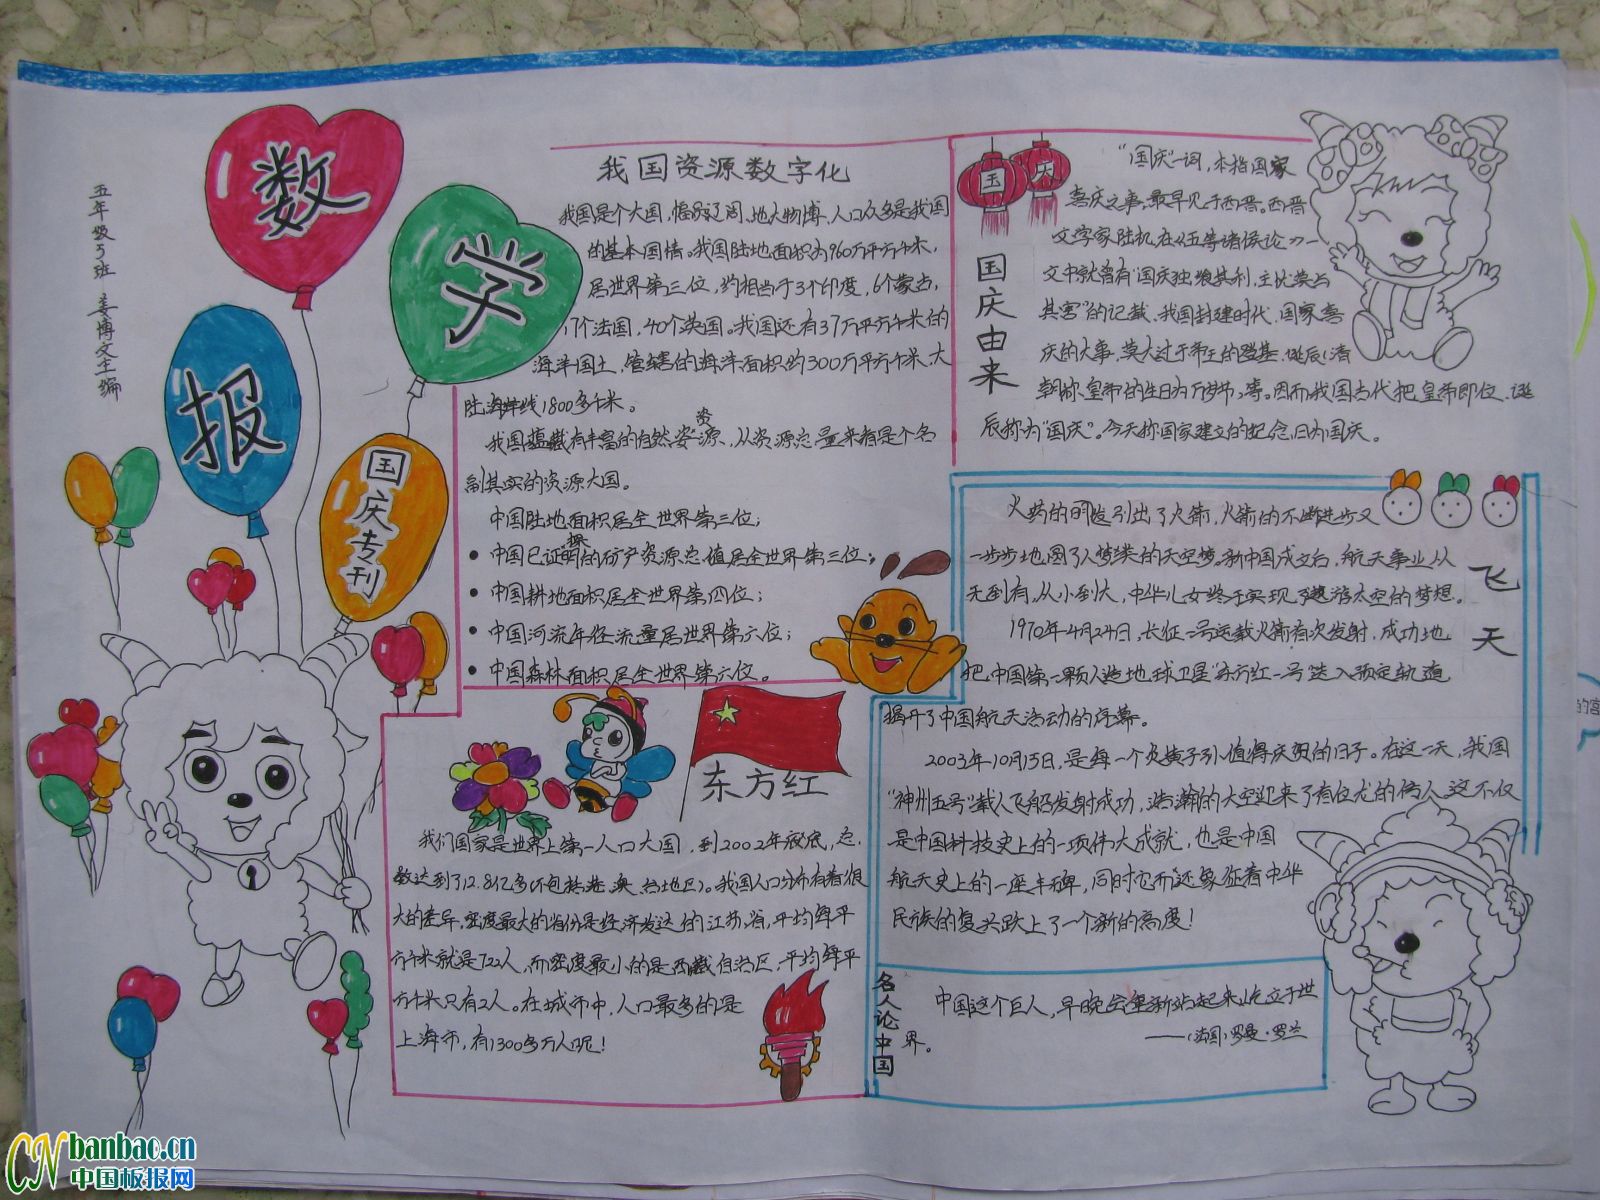 数
学
报
国庆专刊
五年级5班 姜博文主编
我国资源数字化
我国是个大国,幅员辽阔,地大物博,人口众多是我国
的基本国情。我国陆地面积为960万平方千米,
居世界第三位,约相当于3个印度,6个蒙古,
17个法国,40个英国。我国还有37万平方千米的
海洋国土,管辖的海洋面积约300万平方千米,大
陆海岸线1800多千米。
我国蕴藏有丰富的自然资源,从资源总量来看是个名
副其实的资源大国。
中国陆地面积居全世界第三位;
• 中国已证探明的矿产资源总值居全世界第三位;
• 中国耕地面积居全世界第四位;
• 中国河流年径流量居世界第六位;
• 中国森林面积居全世界第六位。
国庆
国庆由来
"国庆"一词,本指国家
喜庆之事,最早见于西晋。西晋
文学家陆机在《五等诸侯论》一
文中就曾有"国庆独飨其利,主忧莫与
其害"的记载、我国封建时代、国家喜
庆的大事,莫大过于帝王的登基、诞辰(清
朝称皇帝的生日为万岁节)等。因而我国古代把皇帝即位、诞
辰称为"国庆"。今天称国家建立的纪念日为国庆。
飞天
火药的问发引出了火箭,火箭的不断进步又
一步步地圆了人类的天空梦。新中国成立后,航天事业从
无到有,从小到大,中华儿女终于实现了遨游太空的梦想。
1970年4月24日,长征一号运载火箭首次发射,成功地
把中国第一颗人造地球卫星"东方红一号"送入预定轨道
揭开了中国航天活动的序幕。
2003年10月15日,是每一个炎黄子孙值得庆贺的日子。在这一天,我国
"神州五号"载人飞船发射成功,浩瀚的太空迎来了首位龙的传人,这不仅
是中国科技史上的一项伟大成就,也是中国
航天史上的一座丰碑,同时它而还象征着中华
民族的复兴跃上了一个新的高度!
东方红
我们国家是世界上第一人口大国,到2002年底,总
数达到了12.8亿多(不包括港、澳、台地区)。我国人口分布有着很
大的差异,密度最大的省份是经济发达的江苏省,平均每平
方千米就是722人,而密度最小的是西藏自治区,平均每平
方千米只有2人。在城市中,人口最多的是
上海市,有1300多万人呢!
名人论中国
中国这个巨人,早晚会重新站起来屹立于世
界。
——(法国)罗曼·罗兰
的宫
CN banbao.cn
中国板报网